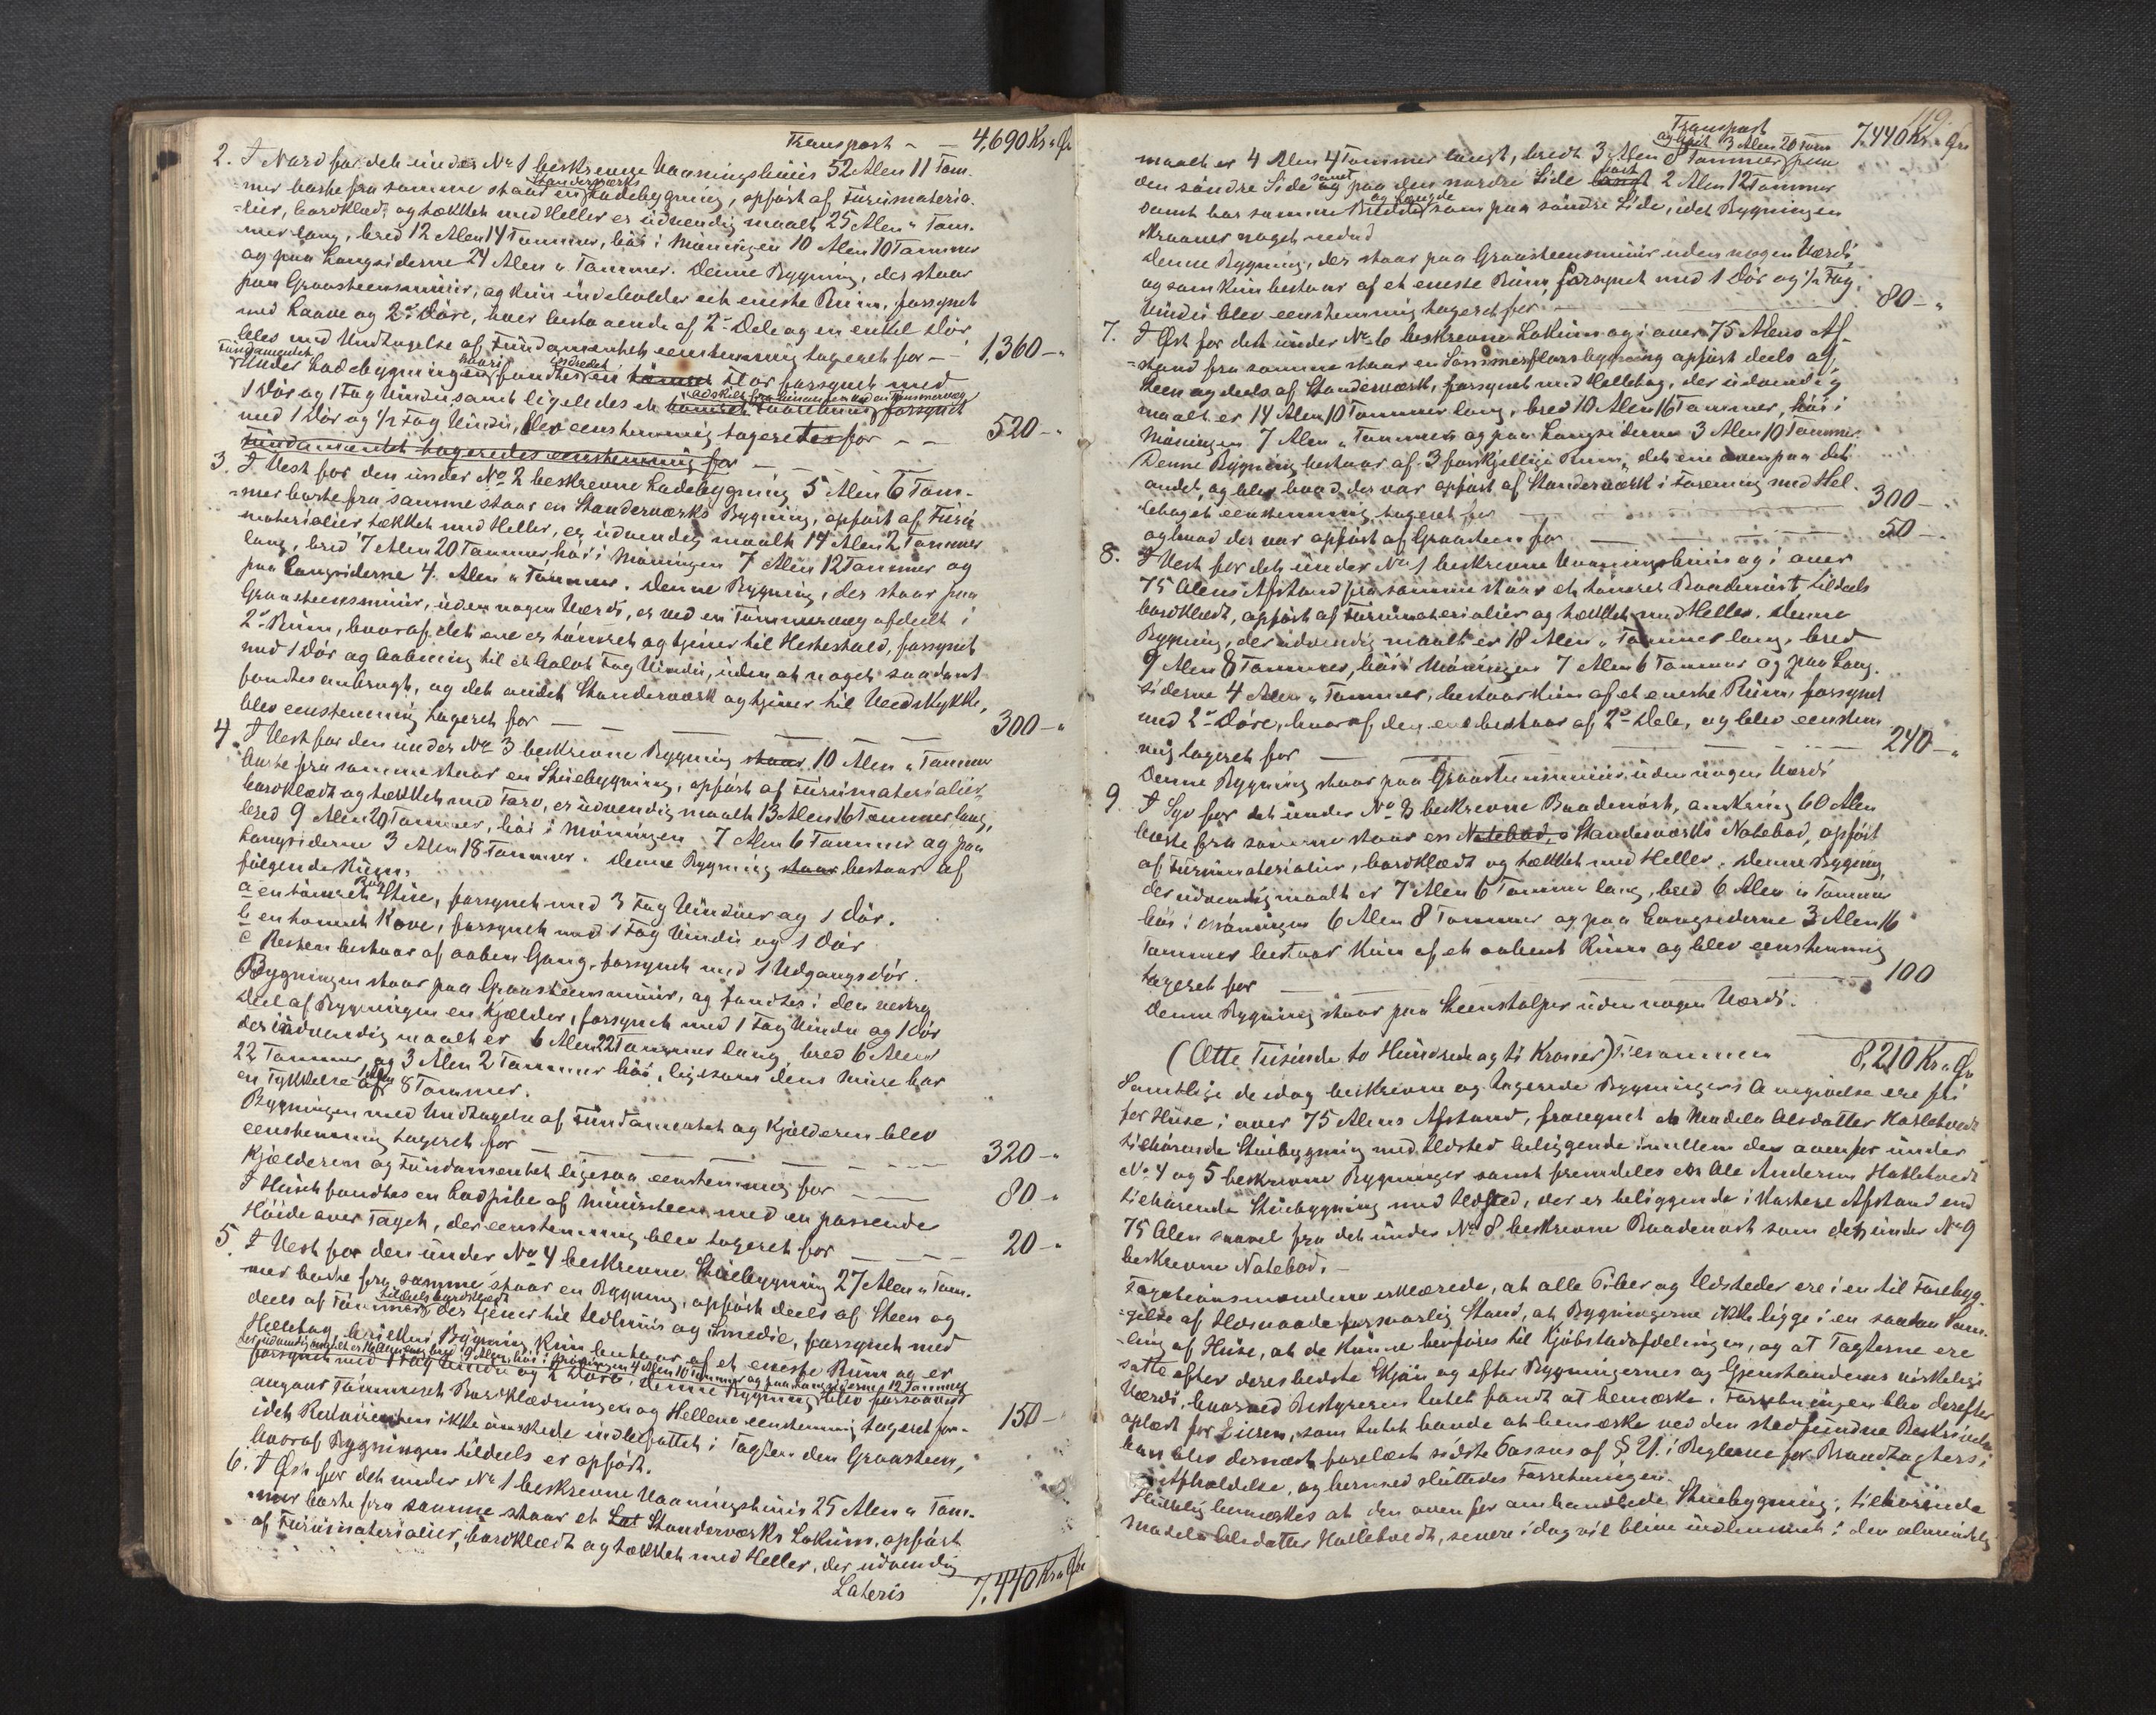 Transport - - 4,690 Kr. " Øre
2. I Nord for det under No 1 beskrevne Vaaningshuus 52 Alen 11 Tom-
mer borte fra samme staar en Standerværks Ladebygning, opført af Furumateria-
lier, bordklædt, og tækket med Heller er udvendig maalt 25 Alen " Tom-
mer lang, bred 12 Alen 14 Tommer, høi i Møningen 10 Alen 10 Tommer
og paa Langsiderne 24 Alen " Tommer. Denne Bygning, der staar
paa Graasteensmuur, og kun indeholder eet eneste Rum, forsynet
med Laave og 2de Døre, hver bestaaende af 2de Dele og en enkel Dør
blev med Undtagelse af Fundamentet eenstemmig taxeret for - 1,360 - "
Fundamentet
Under Ladebygningen hvori fandtes en indredet tømret Flor forsynet med
1 Dør og 1 Fag Vindu samt ligeledes et tømret Faarehuus forsynet
adskilt fra hinanden ved en Tømmervæg
med 1 Dør og 1/2 Fag Vindu, blev eenstemmig taxeret for - - 520 - "
Fundamentet taxeredes eenstemmig for
3. I Vest for den under No 2 beskrevne Ladebygning 5 Alen 6 Tom-
mer borte fra samme staar en Standerværks Bygning, opført af Furu
materialier tækket med Heller, er udvendig maalt 14 Alen 2 Tommer
lang, bred 7 Alen 20 Tommer høi i Møningen 7 Alen 12 Tommer og
paa Langsiderne 4 Alen " Tommer. Denne Bygning, der staar paa
Graasteensmuur, uden nogen Værdi, er ved en Tømmervæg afdeelt i
2de Rum, hvoraf det ene er tømret og tjener til Hestestald, forsynet
med 1 Dør og Aabning til et halvt Fag Vindu, uden at noget saadant
fandtes anbragt, og det andet Standerværk og tjener til Vedskykke,
blev eenstemmig taxeret for - 300 - "
4. I Vest for den under No 3 beskrevne Bygning staar 10 Alen " Tommer
borte fra samme staar en Stuebygning, opført af Furumaterialier,
bordklædt og tækket med Torv, er udvendig maalt 13 Alen 16 Tommer lang,
bred 9 Alen 20 Tommer, høi i Møningen 7 Alen 6 Tommer og paa
Langsiderne 3 Alen 18 Tommer. Denne Bygning staar bestaar af
følgende Rum.
a en tømret Stue, forsynet med 3 Fag Vinduer og 1 Dør.
b en tømret Kove, forsynet med 1 Fag Vindu og 1 Dør
c Resten bestaar af aaben Gang, forsynet med 1 Udgangsdør.
Bygningen staar paa Graasteensmuur, og fandtes i den vestre
Deel af Bygningen en Kjælder, forsynet med 1 Fag Vindu og 1 Dør
der indvendig maalt er 6 Alen 22 Tommer lang, bred 6 Alen
22 Tommer og 3 Alen 2 Tommer høi, ligesom dens Mure har
en Tykkelse af 1 Alen 8 Tommer.
Bygningen med Undtagelse af Fundamentet og Kjælderen blev
eenstemmig taxeret for - 320 - "
Kjælderen og Fundamentet ligesaa eenstemmig for - 80 - "
I Huset fandtes en Ladpibe af Muursteen med en passende
Høide over Taget, der eenstemmig blev taxeret for - 20 - "
5. I Vest for den under No 4 beskrevne Stuebygning 27 Alen " Tom-
mer borte fra samme staar en Bygning, opført deels af Steen og
deels af Tømmer, tildeels bordklædt der tjener til Ildhuus og Smedie, forsynet med
Helletag, hvilken Bygning kun bestaar af et eneste Rum og er
forsynet med 1 Fag Vindu og 2 Døre. Denne Bygning blev forsaavidt
angaar Tømmeret Bordklædningen og Hellene eenstemmig taxeret for - 150 -
idet Rekvirenten ikke ønskede indbefattet i Taxten den Graasteen,
hvoraf Bygningen tildeels er opført.
6. I Øst for det under No 1 beskrevne Vaaningshuus 25 Alen " Tom-
mer borte fra samme staar et Standerværks Lokum, opført
af Furumaterialier, bordklædt og tækket med Heller, der udvendig
Lateris 7,440 Kr. " Øre
119.
Transport 7.440 Kr. " Øre
og høit 3 Alen 20 Tom
maalt er 4 Alen 4 Tommer langt, bredt 3 Alen 8 Tommer paa
den søndre Side samt og paa den nordre Side langt 2 Alen 12 Tommer
samt har samme Bredde og Længde som paa søndre Side, idet Bygningen
skraaner noget nedad
Denne Bygning, der staar paa Graasteensmuur uden nogen Værdi
og som kun bestaar af et eneste Rum, forsynet med 1 Dør og 1/2 Fag
Vindu blev eenstemmig taxeret for - 80 - "
7. I Øst for det under No 6 beskrevne Lokum og i over 75 Alens Af-
stand fra samme staar en Sommerflorsbygning opført deels af
Steen og deels af Standerværk, forsynet med Helletag, der udvendig
maalt er 14 Alen 10 Tommer lang, bred 10 Alen 16 Tommer, høi i
Møningen 7 Alen " Tommer og paa Langsiderne 3 Alen 10 Tommer.
Denne Bygning bestaar af 3 forskjellige Rum, det ene ovenpaa det
andet, og blev hvad der var opført af Standerværk i Forening med Hel-
letaget eenstemmig taxeret for - 300 - "
og hvad der var opført af Graasteen for - 50 - "
8. I Vest for det under No 1 beskrevne Vaaningshuus og i over
75 Alens Afstand fra samme staar et tømret Baadenøst, tildeels
bordklædt, opført af Furumaterialier og tækket med Heller. Denne
Bygning, der udvendig maalt er 18 Alen " Tommer lang, bred
9 Alen 8 Tommer, høi i Møningen 7 Alen 6 Tommer og paa Lang-
siderne 4 Alen " Tommer, bestaar kun af et eneste Rum, forsynet
med 2de Døre, hvoraf den ene bestaar af 2de Dele, og blev eenstem-
mig taxeret for - 240 - "
Denne Bygning staar paa Graasteensmuur uden nogen Værdi
9. I Syd for det under No 8 beskrevne Baadenøst, omkring 60 Alen
borte fra samme staar en Notebod, Standerværks Notebod, opført
af Furumaterialier, bordklædt og tækket med Heller. Denne Bygning,
der udvendig maalt er 7 Alen 6 Tommer lang, bred 6 Alen " Tommer
høi i Møningen 6 Alen 8 Tommer og paa Langsiderne 3 Alen 16
Tommer bestaar kun af et aabent Rum og blev eenstemmig
taxeret for - 100
Denne Bygning staar paa Steenstolper uden nogen Værdi.
(Otte Tusinde to Hundrede og ti Kroner) Tilsammen 8,210 Kr. " Øre
Samtlige de idag beskrevne og taxerede Bygningers Angivelse ere fri
for Huse i over 75 Alens Afstand, fraregnet et Madela Olsdatter Hatletvedt
tilhørende Stuebygning med Ildsted beliggende imellem den ovenfor under
No 4 og 5 beskrevne Bygninger samt fremdeles en Ole Andersen Hatletvedt
tilhørende Stuebygning med Ildsted, der er beliggende i kortere Afstand end
75 Alen saavel fra det under No 8 beskrevne Baadenøst som den under No 9
beskrevne Notebod. -
Taxationsmændene erklærede, at alle Piber og Ildsteder ere i en til Forebyg-
gelse af Ildsvaade forsvarlig Stand, at Bygningerne ikke ligge i en saadan Sam-
ling af Huse, at de kunne henføres til Kjøbstadsafdelingen, og at Taxterne ere
satte efter deres bedste Skjøn og efter Bygningernes og Gjenstandenes virkelige
Værdi, hvorved Bestyreren Intet fandt at bemærke. Forretningen blev derefter
oplæst for Eieren, som Intet havde at bemærke ved den stedfundne Beskrivelse,
han blev dernæst forelæst sidste Passus af § 21 i Reglerne for Brandtaxters
Afholdelse, og hermed sluttedes Forretningen.
Sluttelig bemærkes at den ovenfor omhandlede Stuebygning, tilhørende
Madela Olsdatter Hatletvedt, senere idag vil blive indlemmet i den almindelig